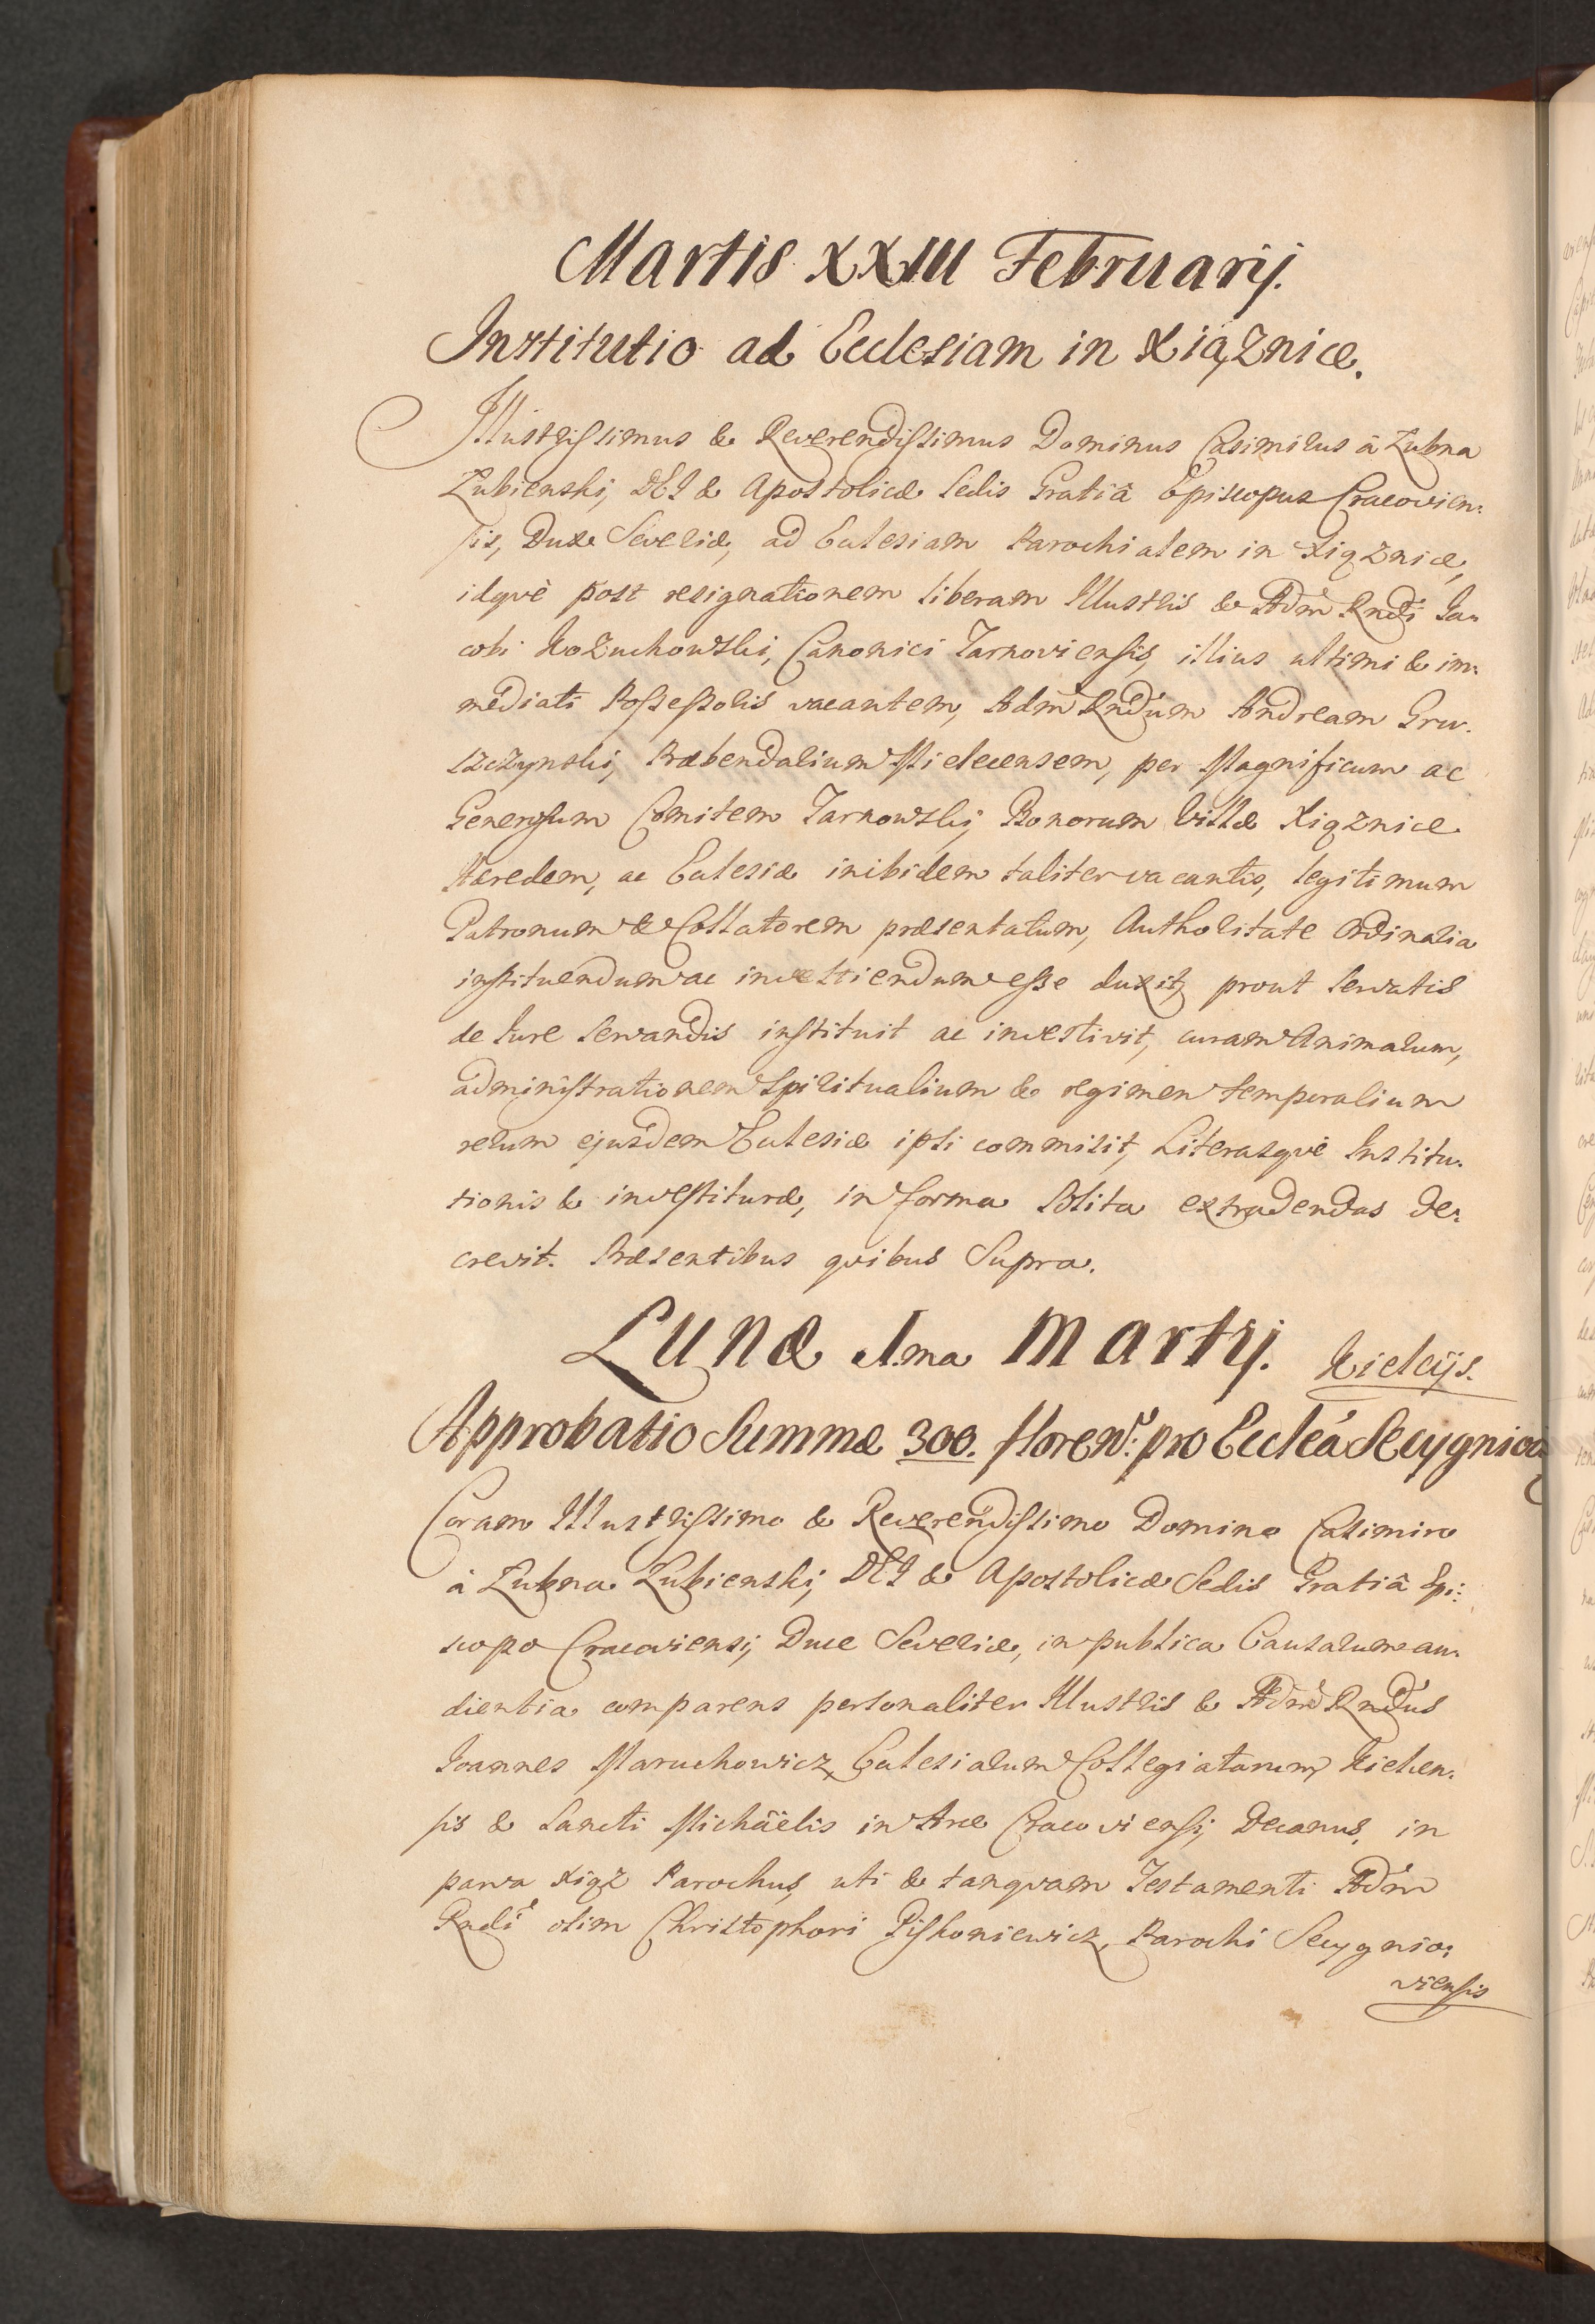 Martis XXIII Februarij.
Institutio ad Ecclesiam in Xiąznice.
Illustrissimus & Reverendissimus Dominus Casimirus â Łubna
Łubienski, DEI & Apostolicæ Sedis Gratiâ Episcopus Cracovien:
sis, Dux Severiæ, ad Ecclesiam Parochialem in Xiąznice,
idqvè post resignationem liberam Illustris & Adm Rndi Ia:
cobi Kozuchowski, Canonici Tarnoviensis, illius ultimi & im:
mediati Possessoris vacantem, Adm Rndum Andream Gru:
szczynski, Præbendarium Mielecensem, per Magnificum ac
Generosum Comitem Tarnowski, Bonorum Villæ Xiąznice
Hæredem, ac Ecclesiæ inibidem taliter vacantis, legitimum
Patronum & Collatorem præsentatum, Authoritate Ordinaria
instituendum ac investiendum esse duxit, prout servatis
de Iure servandis instituit ac investivit, curam Animarum,
administrationem Spiritualium & regimen temporalium
rerum ejusdem Ecclesiæ ipsi commisit, Literasqvè Institu:
tionis & investituræ, in forma solita extradendas de:
crevit. Præsentibus qvibus Supra.
Lunæ 1.ma Martij. Kielcijs.
Approbatio Summæ 300. floren: pro Eccleâ Secygniov
Coram Illustrissimo & Reverendissimo Domino Casimiro
â Łubna Łubienski, DEI & Apostolicæ Sedis Gratiâ Epi:
scopo Cracoviensi, Duce Severiæ, in publica Causarum au:
dientia comparens personaliter Illustris & Adm Rndus
Ioannes Maruchowicz, Ecclesiarum Collegiatarum, Kielcen:
sis & Sancti Michaëlis in Arce Cracoviensi, Decanus, in
parva Xiąz Parochus, uti & tanqvam Testamenti Adm
Rndi olim Christophori Piskoniewicz, Parochi Secygnio:
viensis